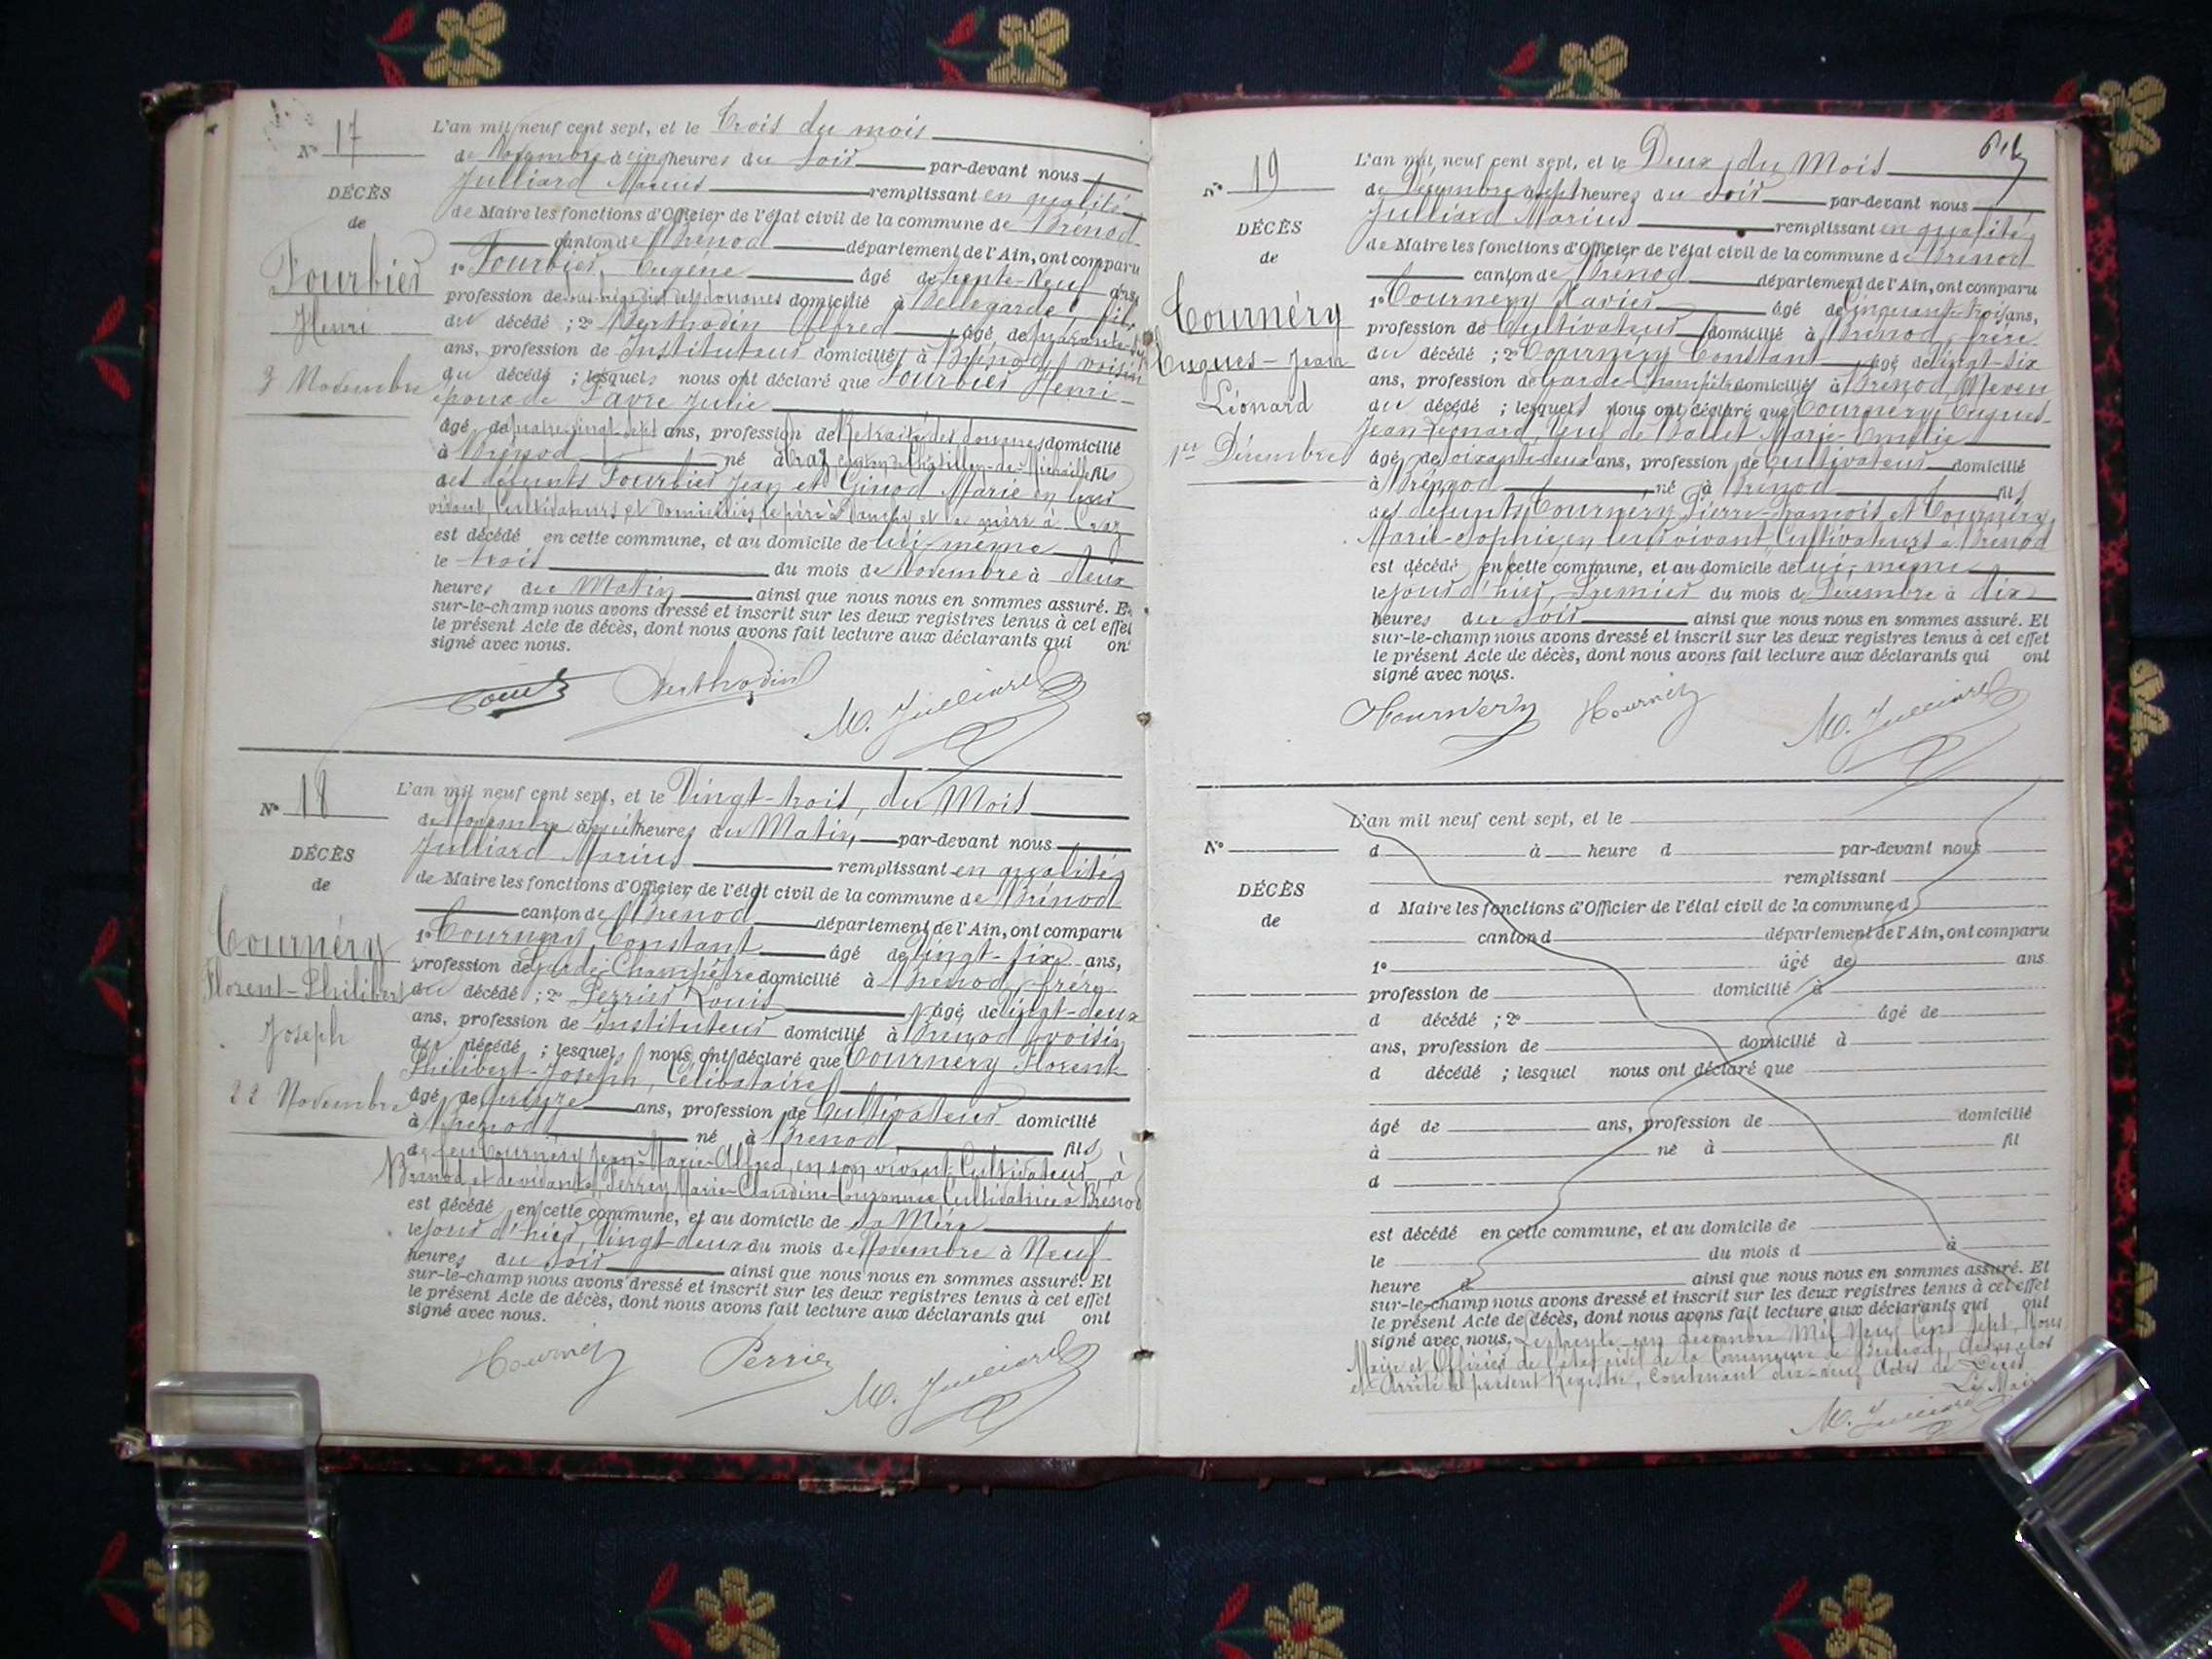 N° 17
DÉCÈS
de
Fourbier
Henri
3 Novembre
L'an mil neuf cent sept, et le Trois du mois
de Novembre à cinq heures du Soir par-devant nous
Julliard Marius remplissant en qualité
de Maire les fonctions d'Officier de l'état civil de la commune de Brénod
canton de Brénod département de l'Ain, ont comparu
1° Fourbier, Eugène âgé de trente-neuf ans,
profession de des douanes domicilié à Bellegarde, fils
du décédé ; 2° Berthodin Alfred, âgé de quarante
ans, profession de Instituteur domicilié à Brénod, voisin
du décédé ; lesquels nous ont déclaré que Fourbier Henri
époux de Favre Julie
âgé de quatre-vingt-sept ans, profession de Retraité des douanes domicilié
à Brénod né à Craz, canton de Châtillon-de-Michaille fils
des défunts Fourbier Jean et Ginod Marie en leur
vivant, Cultivateurs et domiciliés, le père à et la mère à Craz
est décédé en cette commune, et au domicile de lui-même
le trois du mois de Novembre à deux
heures du Matin ainsi que nous nous en sommes assuré. Et
sur-le-champ nous avons dressé et inscrit sur les deux registres tenus à cet effet
le présent Acte de décès, dont nous avons fait lecture aux déclarants qui ont
signé avec nous.
Berthodin M. Julliard
N° 18
DÉCÈS
de
Tournéry
Florent-Philibert
Joseph
22 Novembre
L'an mil neuf cent sept, et le Vingt-trois, du Mois
de Novembre à huit heures du Matin, par-devant nous
Julliard Marius remplissant en qualité
de Maire les fonctions d'Officier de l'état civil de la commune de Brénod
canton de Brénod département de l'Ain, ont comparu
1° Tournéry Constant âgé de Vingt-six ans,
profession de Garde-Champêtre domicilié à Brénod, frère
du décédé ; 2° Perrier Louis, âgé de Vingt-deux
ans, profession de Instituteur domicilié à Brénod voisin
du décédé ; lesquel nous ont déclaré que Tournéry Florent
Philibert-Joseph, Célibataire
âgé de quinze ans, profession de Cultivateur domicilié
à Brénod né à Brénod fils
de feu Tournéry Jean-Marie-Alfred, en son vivant Cultivateur, à
Brénod, et de vivante, Perrey Marie-Claudine Cultivatrice à Brénod
est décédé en cette commune, et au domicile de sa Mère
le jour d'hier, Vingt-deux du mois de Novembre à Neuf
heures du Soir ainsi que nous nous en sommes assuré. Et
sur-le-champ nous avons dressé et inscrit sur les deux registres tenus à cet effet
le présent Acte de décès, dont nous avons fait lecture aux déclarants qui ont
signé avec nous.
Tournéry Perrier M. Julliard
N° 19
DÉCÈS
de
Tournéry
Eugues-Jean
Léonard
1er Décembre
L'an mil neuf cent sept, et le Deux, du Mois
de Décembre à sept heures du Soir par-devant nous
Julliard Marius remplissant en qualité
de Maire les fonctions d'Officier de l'état civil de la commune de Brénod
canton de Brénod département de l'Ain, ont comparu
1° Tournéry Xavier âgé de Cinquante-trois ans,
profession de Cultivateur domicilié à Brénod, frère
du décédé ; 2° Tournéry Constant, âgé de Vingt-six
ans, profession de Garde-Champêtre domicilié à Brénod, Neveu
du décédé ; lesquels nous ont déclaré que Tournéry Eugues
Jean-Léonard, Veuf de Ballet Marie-Emélie
âgé de Soixante-deux ans, profession de Cultivateur domicilié
à Brénod né à Brénod fils
des défunts Tournéry Pierre-François et Tournéry
Marie-Sophie, en leur vivant, Cultivateurs à Brénod
est décédé en cette commune, et au domicile de lui-même
le jour d'hier, Premier du mois de Décembre à dix
heures du Soir ainsi que nous nous en sommes assuré. Et
sur-le-champ nous avons dressé et inscrit sur les deux registres tenus à cet effet
le présent Acte de décès, dont nous avons fait lecture aux déclarants qui ont
signé avec nous.
Tournéry Tournéry M. Julliard
N°
DÉCÈS
de
L'an mil neuf cent sept, et le
d à heure d par-devant nous
remplissant
d Maire les fonctions d'Officier de l'état civil de la commune d
canton d département de l'Ain, ont comparu
1° âgé de ans
profession de domicilié à
d décédé ; 2° âgé de
ans, profession de domicilié à
d décédé ; lesquel nous ont déclaré que
âgé de ans, profession de domicilié
à né à fil
d
est décédé en cette commune, et au domicile de
le du mois d à
heure d ainsi que nous nous en sommes assuré. Et
sur-le-champ nous avons dressé et inscrit sur les deux registres tenus à cet effet
le présent Acte de décès, dont nous avons fait lecture aux déclarants qui ont
signé avec nous. Le trente-un décembre Mil Neuf Cent Sept, Nous
Maire et Officier de l'état civil de la Commune de Brénod, Avons clos
et Arrêté le présent Registre, Contenant dix-neuf Actes de Décès.
Le Maire
M. Julliard